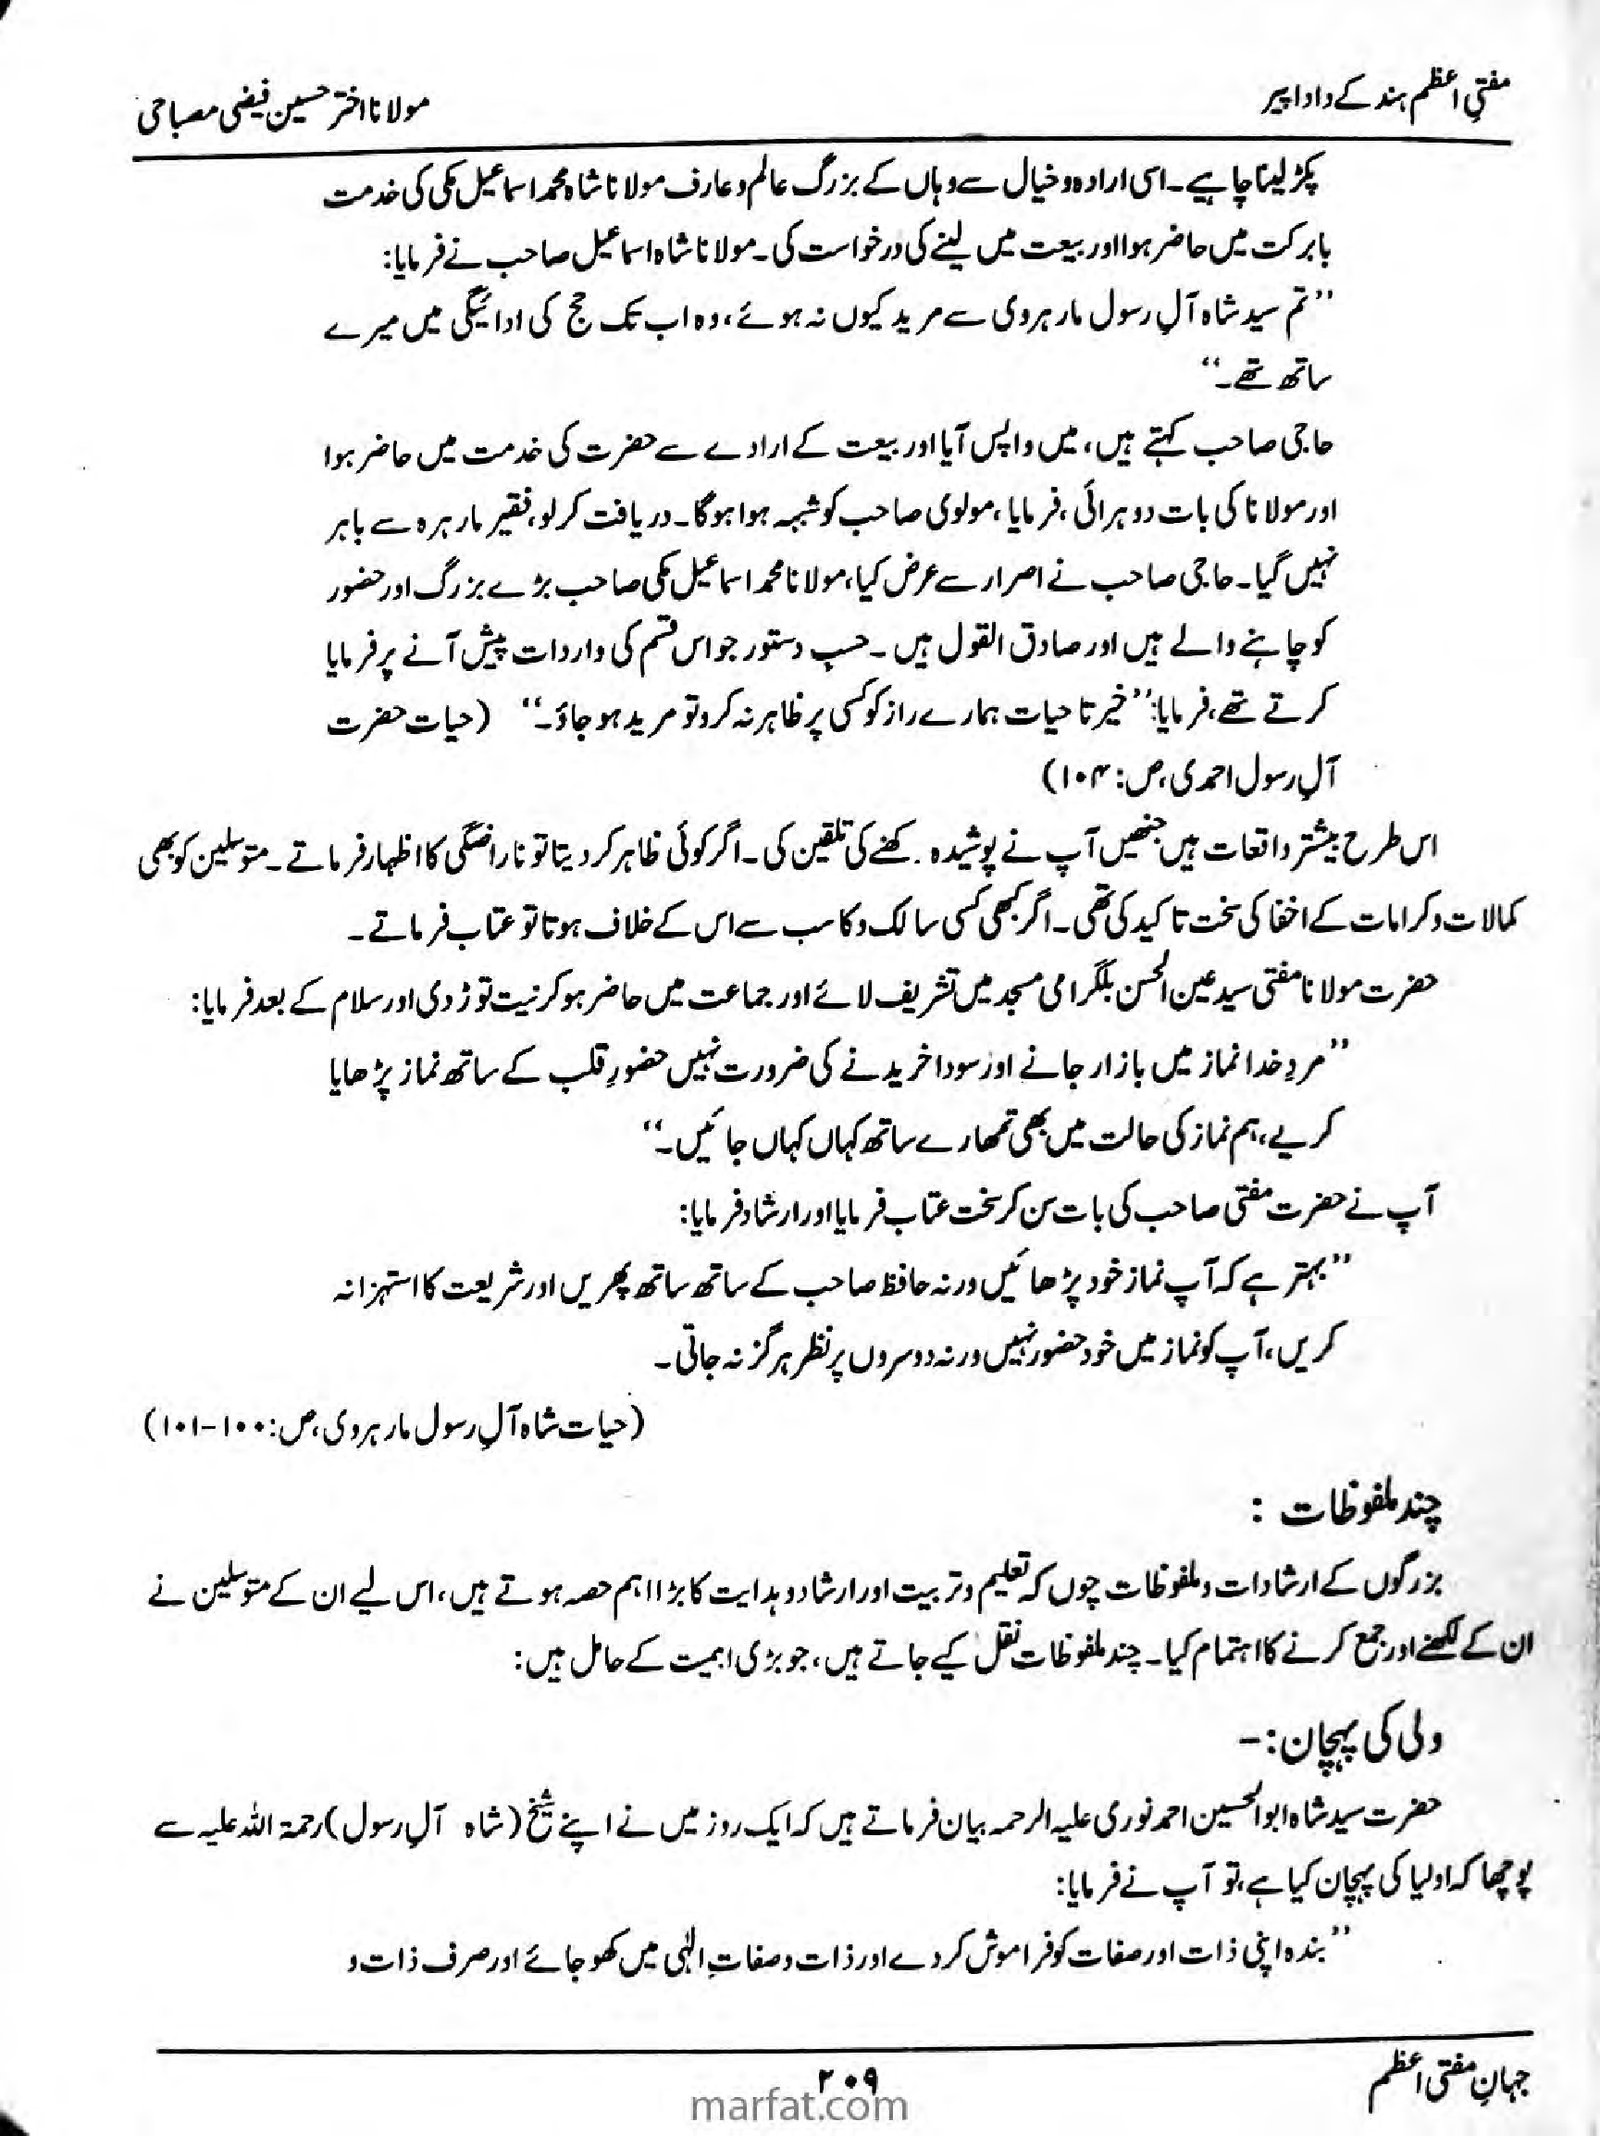 مفتیِ اعظم ہند کے دادا پیر
مولانا اختر حسین فیضی مصباحی
پکڑ لینا چاہیے۔ اسی ارادہ و خیال سے وہاں کے بزرگ عالم و عارف مولانا شاہ محمد اسماعیل مکی کی خدمت
بابرکت میں حاضر ہوا اور بیعت میں لینے کی درخواست کی۔ مولانا شاہ اسماعیل صاحب نے فرمایا:
”تم سید شاہ آلِ رسول مارہروی سے مرید کیوں نہ ہوئے، وہ اب تک حج کی ادائیگی میں میرے
ساتھ تھے۔“
حاجی صاحب کہتے ہیں، میں واپس آیا اور بیعت کے ارادے سے حضرت کی خدمت میں حاضر ہوا
اور مولانا کی بات دوہرائی، فرمایا، مولوی صاحب کو شبہہ ہوا ہوگا۔ دریافت کرلو، فقیر مارہرہ سے باہر
نہیں گیا۔ حاجی صاحب نے اصرار سے عرض کیا، مولانا محمد اسماعیل مکی صاحب بڑے بزرگ اور حضور
کو چاہنے والے ہیں اور صادق القول ہیں۔ حسبِ دستور جو اس قسم کی واردات پیش آنے پر فرمایا
کرتے تھے، فرمایا: ”خیر تا حیات ہمارے راز کو کسی پر ظاہر نہ کرو تو مرید ہو جاؤ۔“ (حیات حضرت
آلِ رسول احمدی، ص: ۱۰۴)
اس طرح بیشتر واقعات ہیں جنھیں آپ نے پوشیدہ رکھنے کی تلقین کی۔ اگر کوئی ظاہر کردیتا تو ناراضگی کا اظہار فرماتے۔ متوسلین کو بھی
کمالات و کرامات کے اخفا کی سخت تاکید کی تھی۔ اگر کبھی کسی سالک و کاسب سے اس کے خلاف ہوتا تو عتاب فرماتے۔
حضرت مولانا مفتی سید عین الحسن بلگرامی مسجد میں تشریف لائے اور جماعت میں حاضر ہو کر نیت توڑ دی اور سلام کے بعد فرمایا:
”مردِ خدا نماز میں بازار جانے اور سودا خریدنے کی ضرورت نہیں حضورِ قلب کے ساتھ نماز پڑھایا
کریے، ہم نماز کی حالت میں بھی تمھارے ساتھ کہاں کہاں جائیں۔“
آپ نے حضرت مفتی صاحب کی بات سن کر سخت عتاب فرمایا اور ارشاد فرمایا:
”بہتر ہے کہ آپ نماز خود پڑھائیں ورنہ حافظ صاحب کے ساتھ ساتھ پھریں اور شریعت کا استہزا نہ
کریں، آپ کو نماز میں خود حضور نہیں ورنہ دوسروں پر نظر ہرگز نہ جاتی۔
(حیات شاہ آلِ رسول مارہروی، ص: ۱۰۰-۱۰۱)
چند ملفوظات :
بزرگوں کے ارشادات و ملفوظات چوں کہ تعلیم و تربیت اور ارشاد و ہدایت کا بڑا اہم حصہ ہوتے ہیں، اس لیے ان کے متوسلین نے
ان کے لکھنے اور جمع کرنے کا اہتمام کیا۔ چند ملفوظات نقل کیے جاتے ہیں، جو بڑی اہمیت کے حامل ہیں:
ولی کی پہچان:-
حضرت سید شاہ ابوالحسین احمد نوری علیہ الرحمہ بیان فرماتے ہیں کہ ایک روز میں نے اپنے شیخ (شاہ آلِ رسول) رحمۃ اللہ علیہ سے
پوچھا کہ اولیا کی پہچان کیا ہے، تو آپ نے فرمایا:
”بندہ اپنی ذات اور صفات کو فراموش کردے اور ذات و صفاتِ الٰہی میں کھو جائے اور صرف ذات و
جہانِ مفتی اعظم
۲۰۹
marfat.com